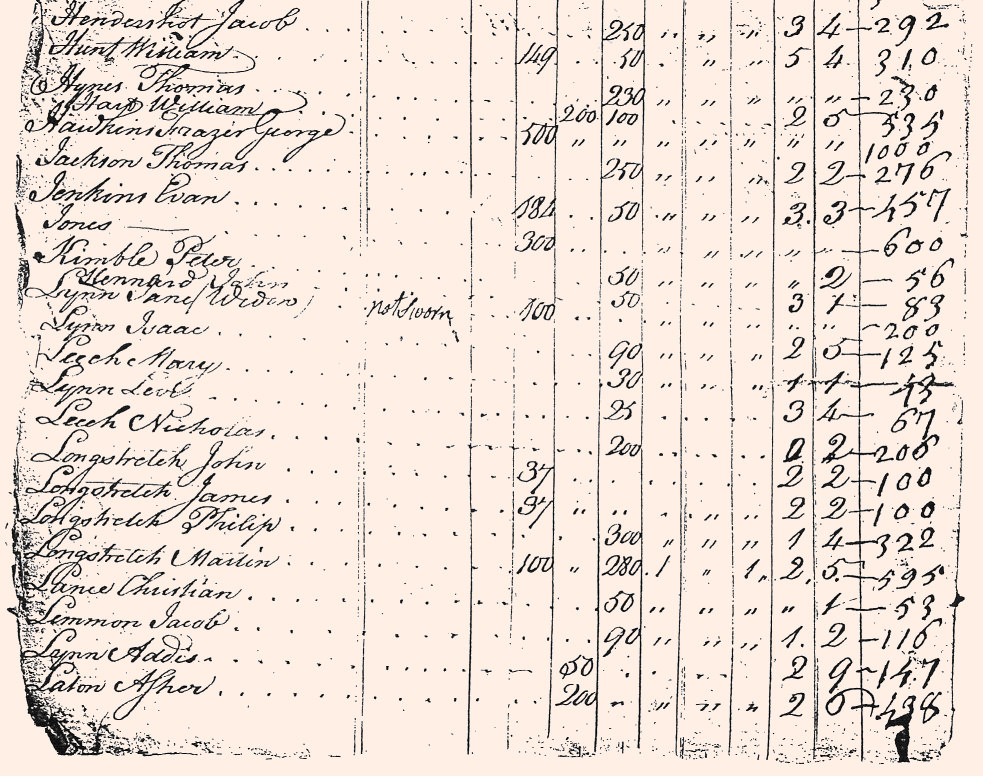 Hendershot Jacob 250 „ „ „ 3 4 — 292
Hunt William 149 50 „ „ 5 4 310
Hynes Thomas 230 „ „ „ „ „ — 230
Hart William 200 100 2 5 — 535
Hawkins Frazer George 500 „ „ „ „ „ „ „ 1000
Jackson Thomas 250 „ „ „ 2 2 — 276
Jenkins Evan 184 50 „ „ „ 3. 3 — 457
Jones — 300 „ „ „ „ „ — 600
Kimble Peter 50 „ „ „ „ 2 — 56
Kennard John 50 3 1 — 83
Lynn Jane (Widow) not Sworn 100 „ „ — 200
Lynn Isaac 90 „ „ „ 2 5 — 125
Leech Mary 30 „ „ „ 1 1 — 43
Lynn Levi 25 3 4 — 67
Leech Nicholas 200 2 2 — 206
Longstretch John 37 2 2 — 100
Longstretch James 37 „ „ „ „ 2 2 — 100
Longstretch Philip 300 „ „ „ 1 4 — 322
Longstretch Martin 100 „ 280 1 „ 1 „ 2. 5. — 595
Lance Christian 50 „ „ „ „ 1 — 53
Lemmon Jacob 90 „ „ „ 1. 2 — 116
Lynn Addis 50 2 9 — 147
Laton Asher 200 „ „ „ „ 2 0 — 438